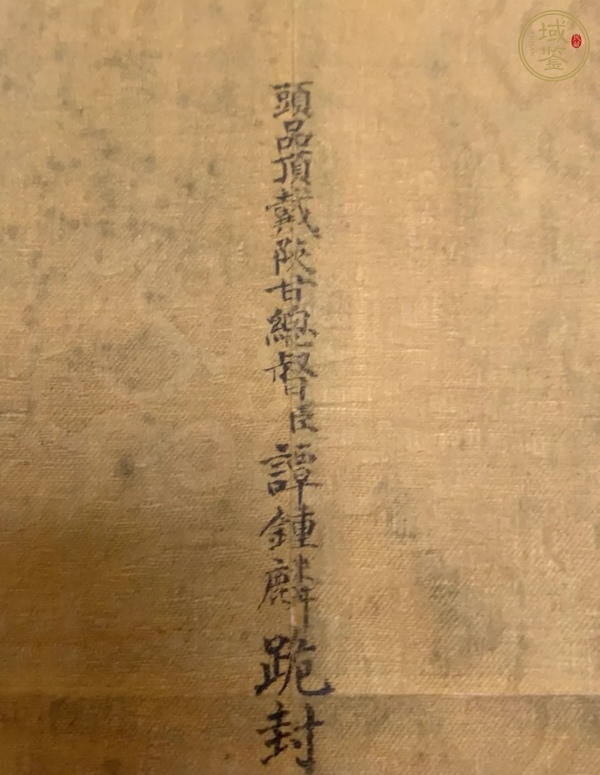 域鉴
頭品頂戴陝甘總督臣譚鍾麟跪封